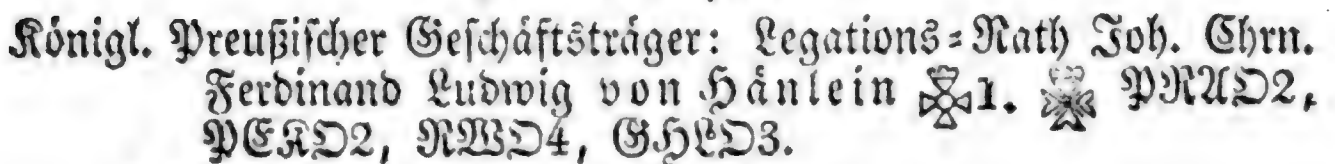 Königl. Preußiſcher Geſchäftsträger: Legations-Rath Joh. Chrn.
Ferdinand Ludwig von Hänlein 1. PRAO2,
PEKO2, RWO4, GHLO3.